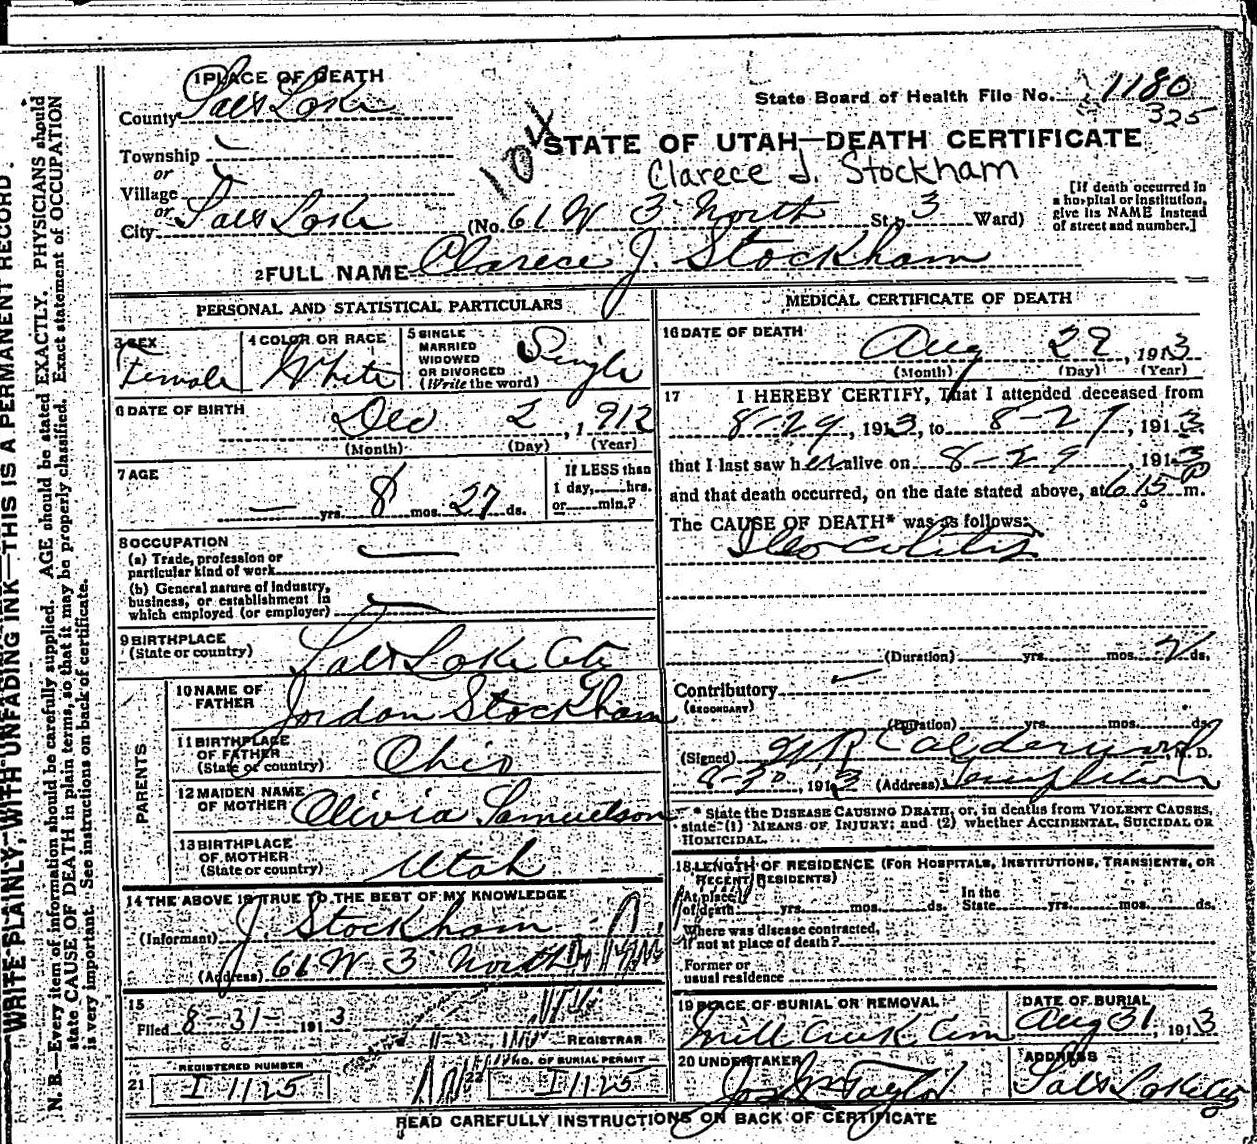 WRITE PLAINLY, WITH UNFADING INK—THIS IS A PERMANENT RECORD.
N. B.—Every item of information should be carefully supplied. AGE should be stated EXACTLY. PHYSICIANS should
state CAUSE OF DEATH in plain terms, so that it may be properly classified. Exact statement of OCCUPATION
is very important. See instructions on back of certificate.
1 PLACE OF DEATH
County Salt Lake
Township
or
Village
or
City Salt Lake
State Board of Health File No. 1180
325
104
STATE OF UTAH—DEATH CERTIFICATE
Clarece J. Stockham
(No. 61 W 3 North St., 3 Ward)
[If death occurred in
a hospital or institution,
give its NAME instead
of street and number.]
2 FULL NAME Clarece J. Stockham
PERSONAL AND STATISTICAL PARTICULARS
3 SEX
Female
4 COLOR OR RACE
White
5 SINGLE
MARRIED
WIDOWED
OR DIVORCED
(Write the word)
Single
6 DATE OF BIRTH
Dec 2, 1912
(Month) (Day) (Year)
7 AGE
— yrs. 8 mos. 27 ds.
If LESS than
1 day, hrs.
or min.?
8 OCCUPATION
(a) Trade, profession or
particular kind of work
(b) General nature of industry,
business, or establishment in
which employed (or employer)
9 BIRTHPLACE
(State or country)
Salt Lake City
PARENTS
10 NAME OF
FATHER
Jordan Stockham
11 BIRTHPLACE
OF FATHER
(State or country)
Ohio
12 MAIDEN NAME
OF MOTHER
Olivia Samuelson
13 BIRTHPLACE
OF MOTHER
(State or country)
Utah
14 THE ABOVE IS TRUE TO THE BEST OF MY KNOWLEDGE
(Informant) J. Stockham
(Address) 61 W 3 North
15
Filed 8-31-, 1913
REGISTRAR
21
REGISTERED NUMBER
I 1125
22
NO. OF BURIAL PERMIT
I 1125
MEDICAL CERTIFICATE OF DEATH
16 DATE OF DEATH
Aug 29, 1913
(Month) (Day) (Year)
17 I HEREBY CERTIFY, That I attended deceased from
8-29, 1913, to 8-29, 1913
that I last saw her alive on 8-29, 1913
and that death occurred, on the date stated above, at 6 15 P m.
The CAUSE OF DEATH* was as follows:
Ileocolitis
(Duration) yrs. mos. ds.
Contributory
(SECONDARY)
(Duration) yrs. mos. ds.
(Signed) W R Calderwood, M. D.
8-30, 1913 (Address) Templeton
* State the DISEASE CAUSING DEATH, or, in deaths from VIOLENT CAUSES,
state (1) MEANS OF INJURY; and (2) whether ACCIDENTAL, SUICIDAL OR
HOMICIDAL.
18 LENGTH OF RESIDENCE (FOR HOSPITALS, INSTITUTIONS, TRANSIENTS, OR
RECENT RESIDENTS)
At place
of death yrs. mos. ds.
In the
State yrs. mos. ds.
Where was disease contracted,
if not at place of death?
Former or
usual residence
19 PLACE OF BURIAL OR REMOVAL
Mill Creek Cem
DATE OF BURIAL
Aug 31, 1913
20 UNDERTAKER
Jos Wm Taylor
ADDRESS
Salt Lake City
READ CAREFULLY INSTRUCTIONS ON BACK OF CERTIFICATE